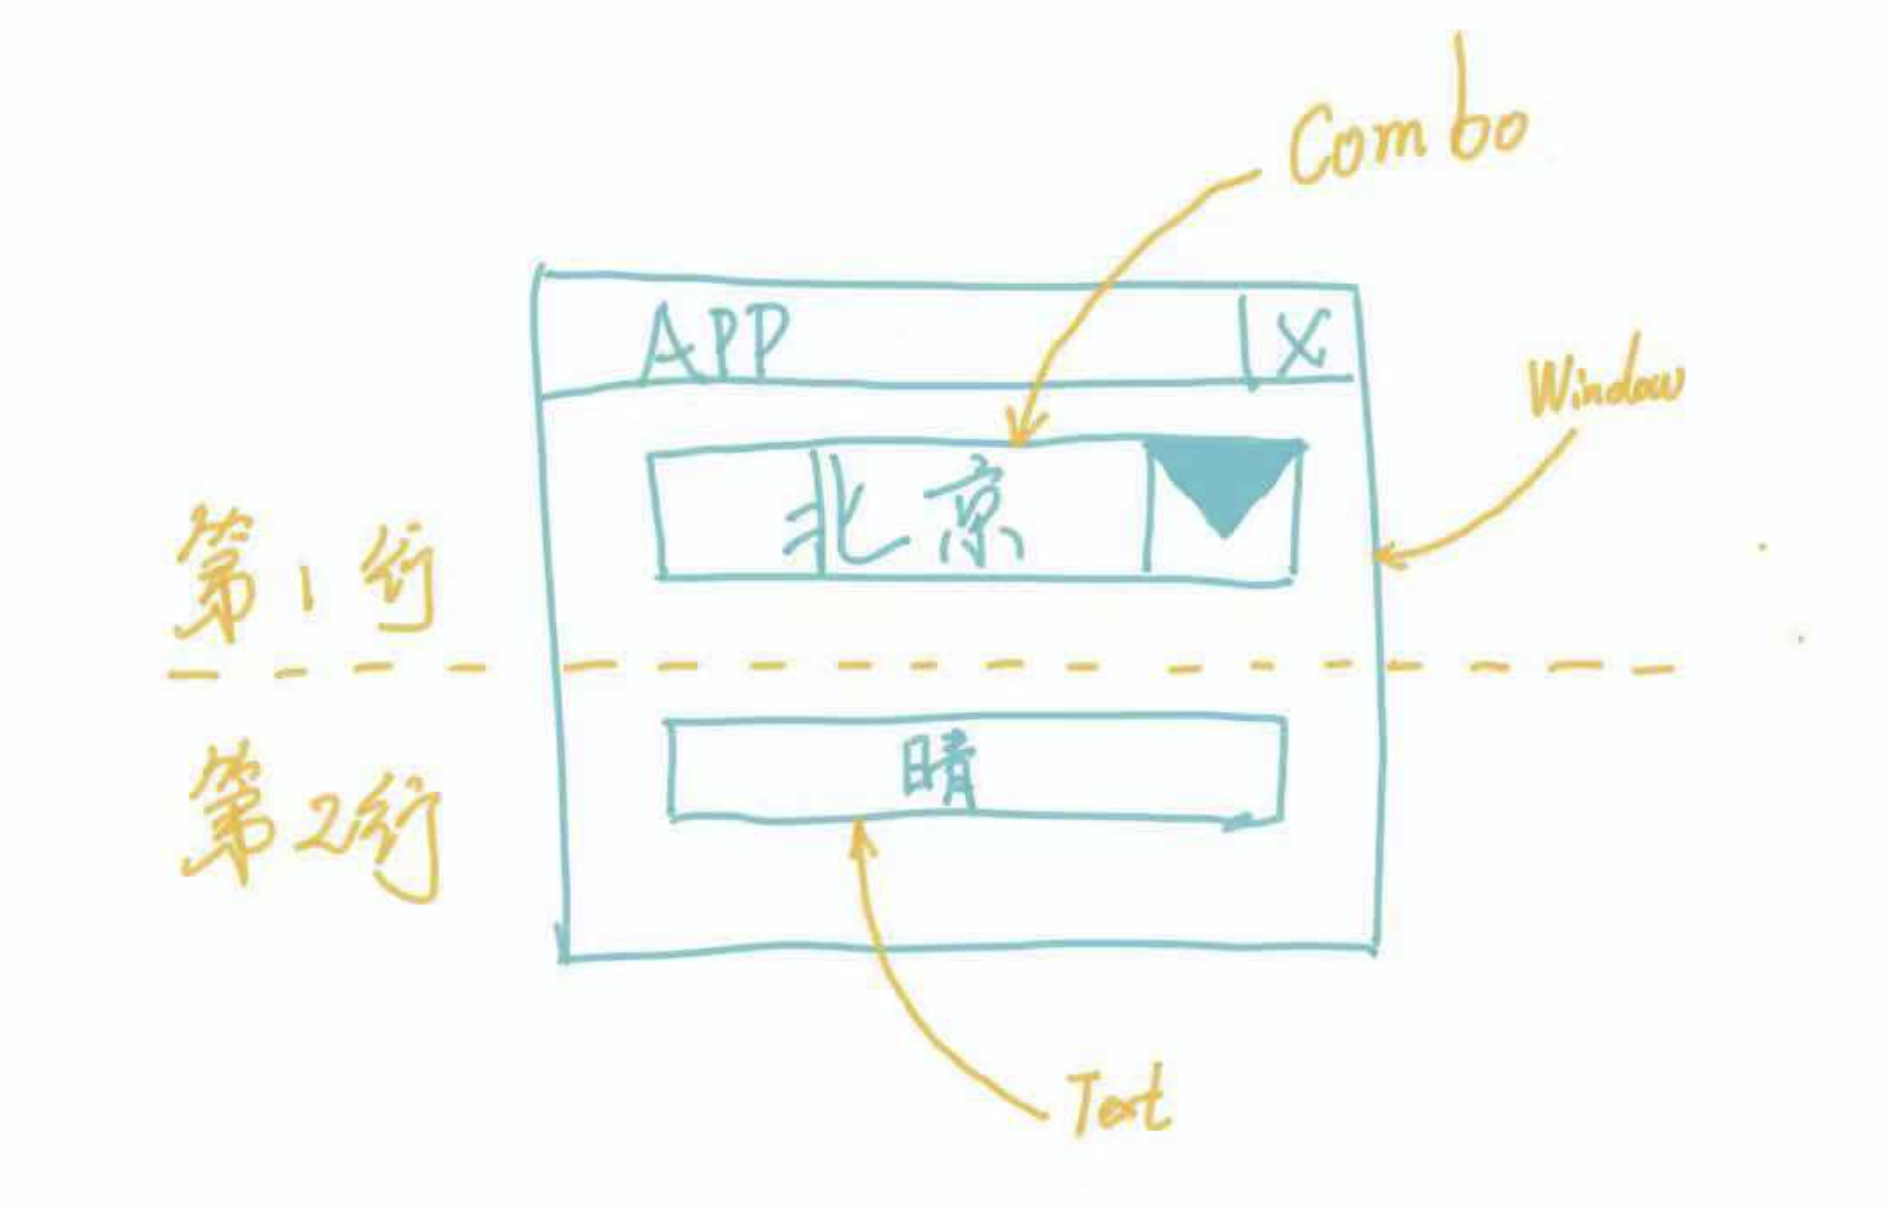 Combo
APP X
Window
北京
第1行
第2行
晴
Text